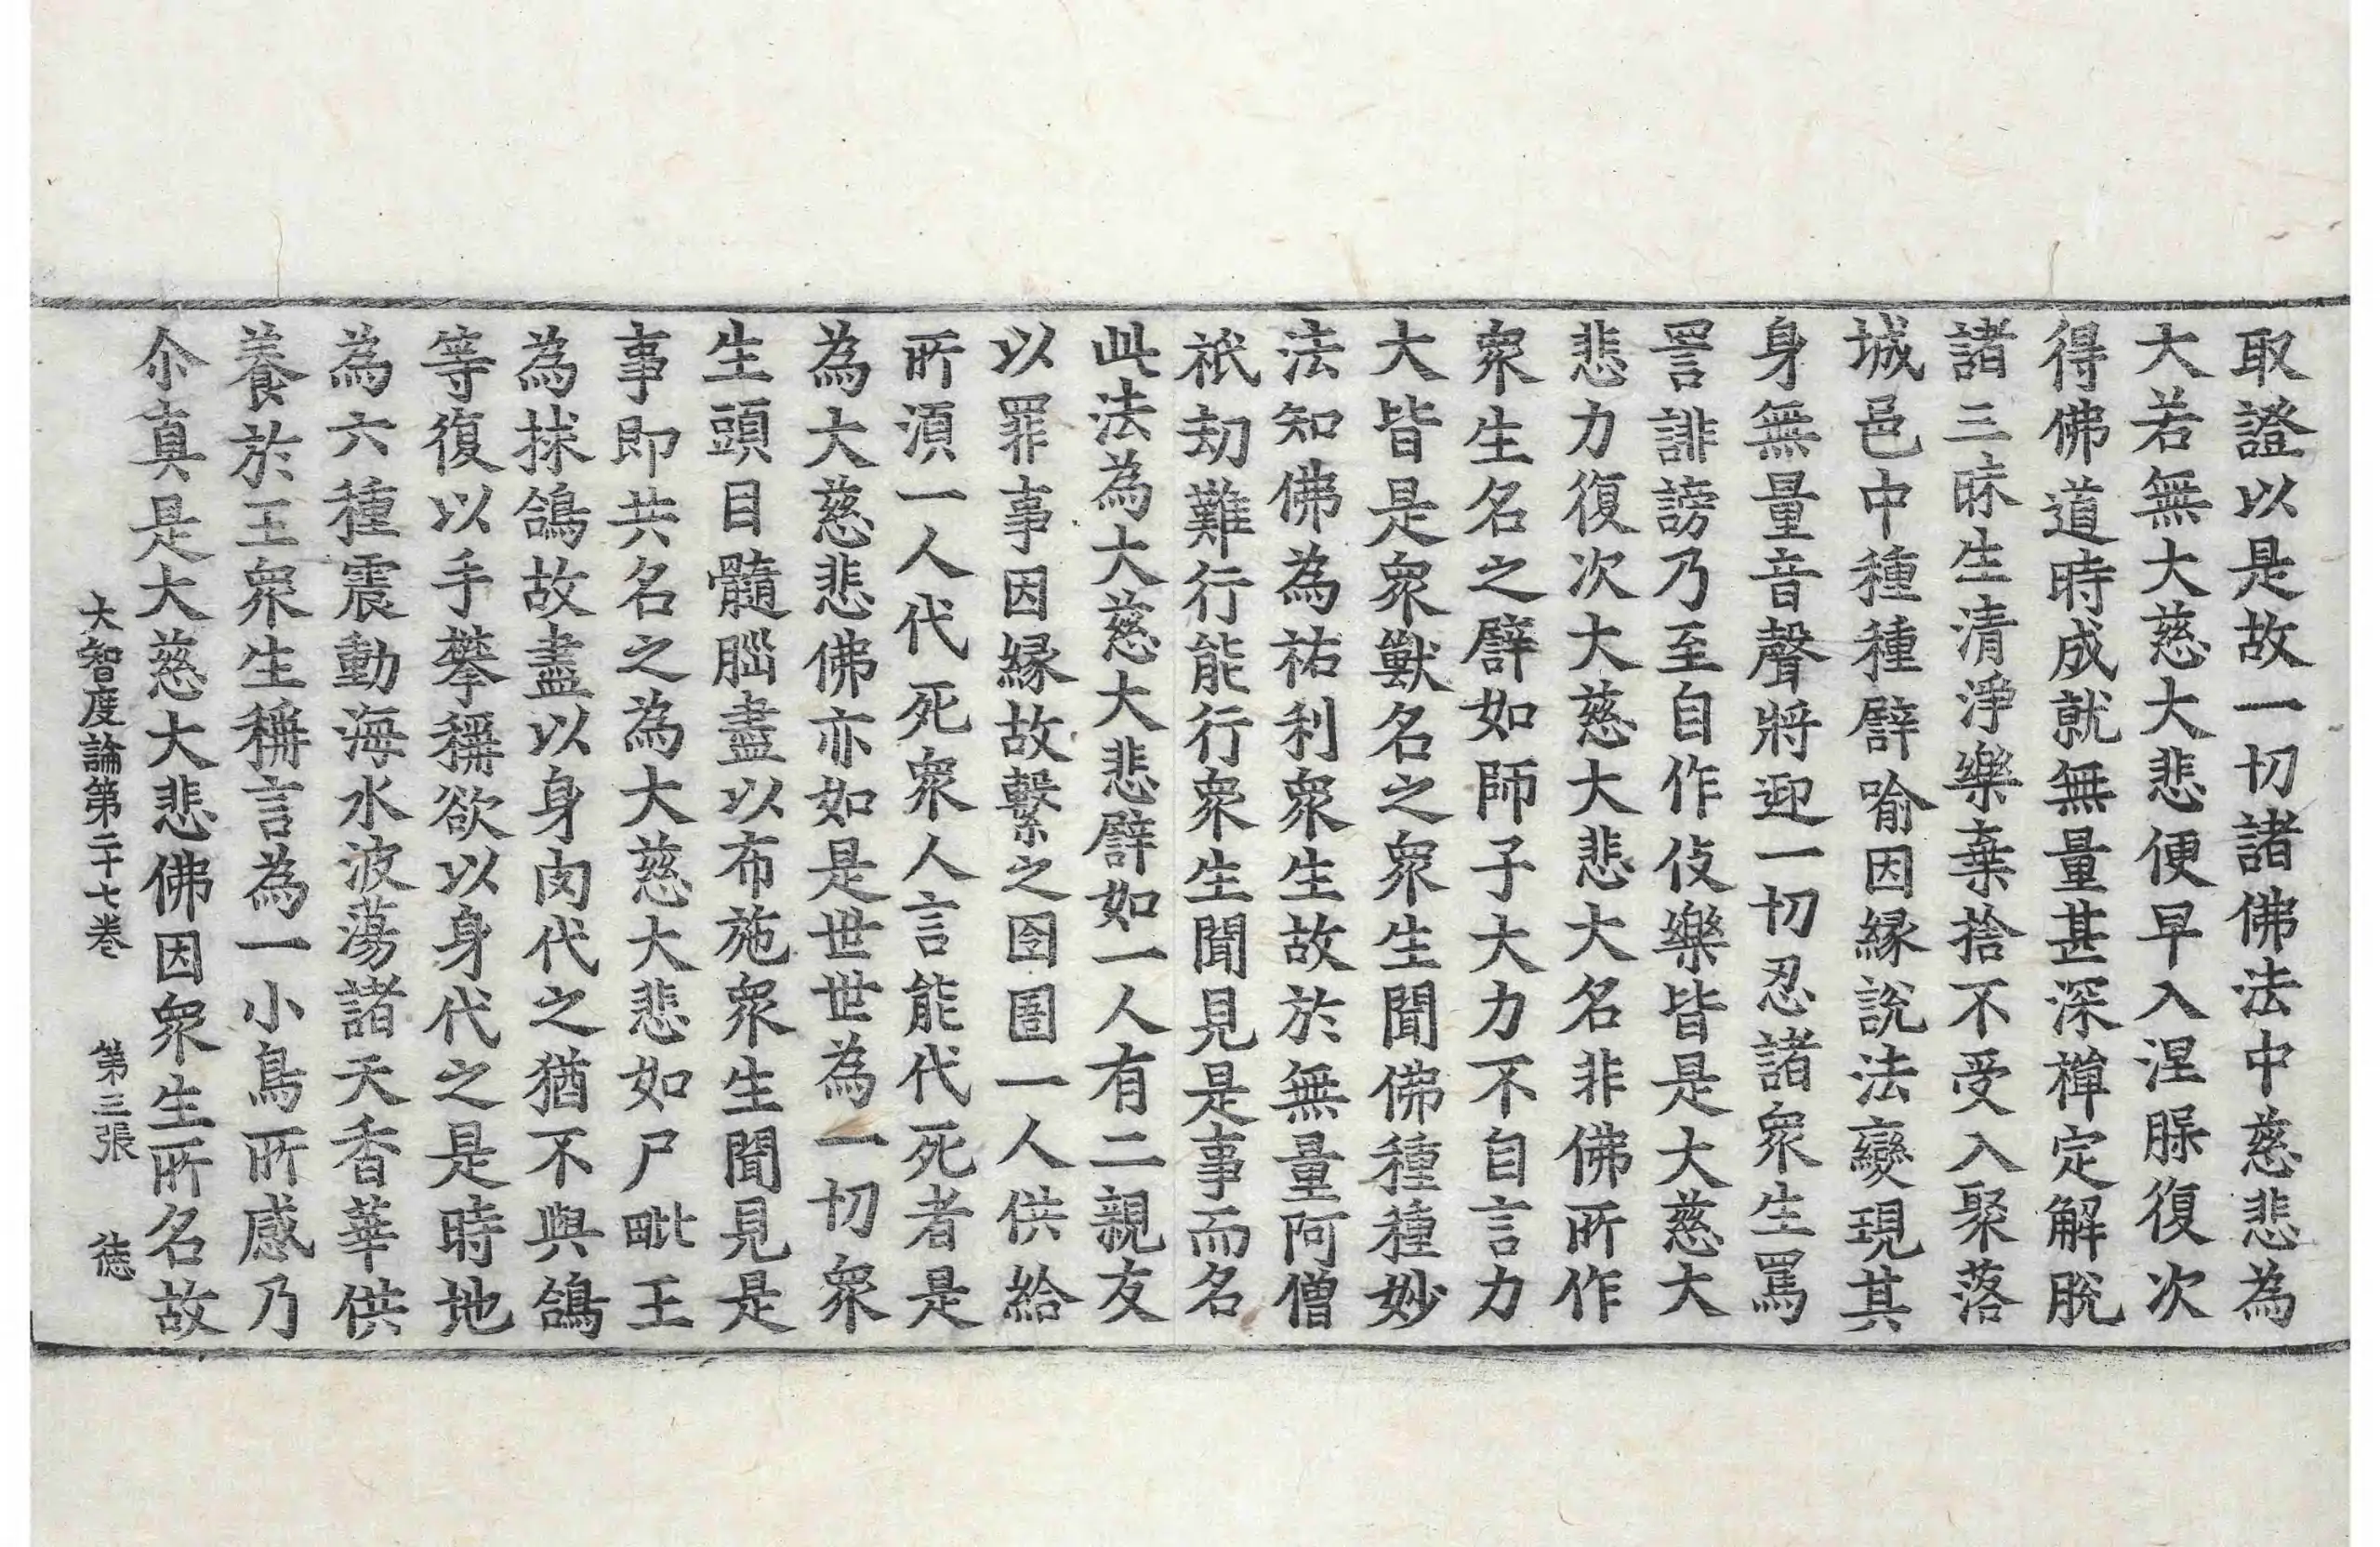 取證以是故一切諸佛法中慈悲為
大若無大慈大悲便早入涅槃復次
得佛道時成就無量甚深禪定解脫
諸三昧生清淨樂棄捨不受入聚落
城邑中種種譬喻因緣說法變現其
身無量音聲將迎一切忍諸衆生罵
詈誹謗乃至自作伎樂皆是大慈大
悲力復次大慈大悲大名非佛所作
衆生名之譬如師子大力不自言力
大皆是衆獸名之衆生聞佛種種妙
法知佛為祐利衆生故於無量阿僧
祇劫難行能行衆生聞見是事而名
此法為大慈大悲譬如一人有二親友
以罪事因緣故繫之囹圄一人供給
所須一人代死衆人言能代死者是
為大慈悲佛亦如是世世為一切衆
生頭目髓腦盡以布施衆生聞見是
事即共名之為大慈大悲如尸毗王
為救鴿故盡以身肉代之猶不與鴿
等復以手攀稱欲以身代之是時地
為六種震動海水波蕩諸天香華供
養於王衆生稱言為一小鳥所感乃
尒真是大慈大悲佛因衆生所名故
大智度論第二十七卷 第三張 德